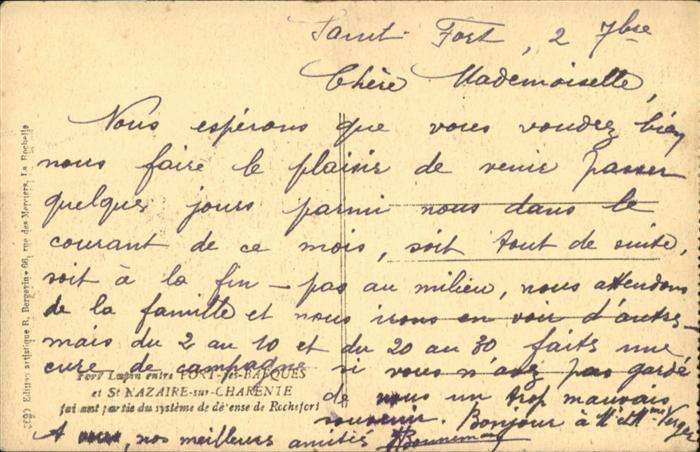 Saint-Fort, 2 7bre
Chère Mademoiselle,
Nous espérons que vous voudrez bien
nous faire le plaisir de venir passer
quelques jours parmi nous dans le
courant de ce mois, soit tout de suite,
soit à la fin - pas au milieu, nous attendons
de la famille et nous irons en voir d'autre,
mais du 2 au 10 et du 20 au 30 faits une
cure de campagne si vous n'avez pas gardé
de nous un trop mauvais
souvenir. Bonjour à Mr et Mme
A vous, nos meilleurs amitiés
Fort Lupin entre PORT-des-BARQUES
et St NAZAIRE-sur-CHARENTE
faisant partie du système de défense de Rochefort
Edition artistique R. Bergevin - 66, rue des Merciers, La Rochelle